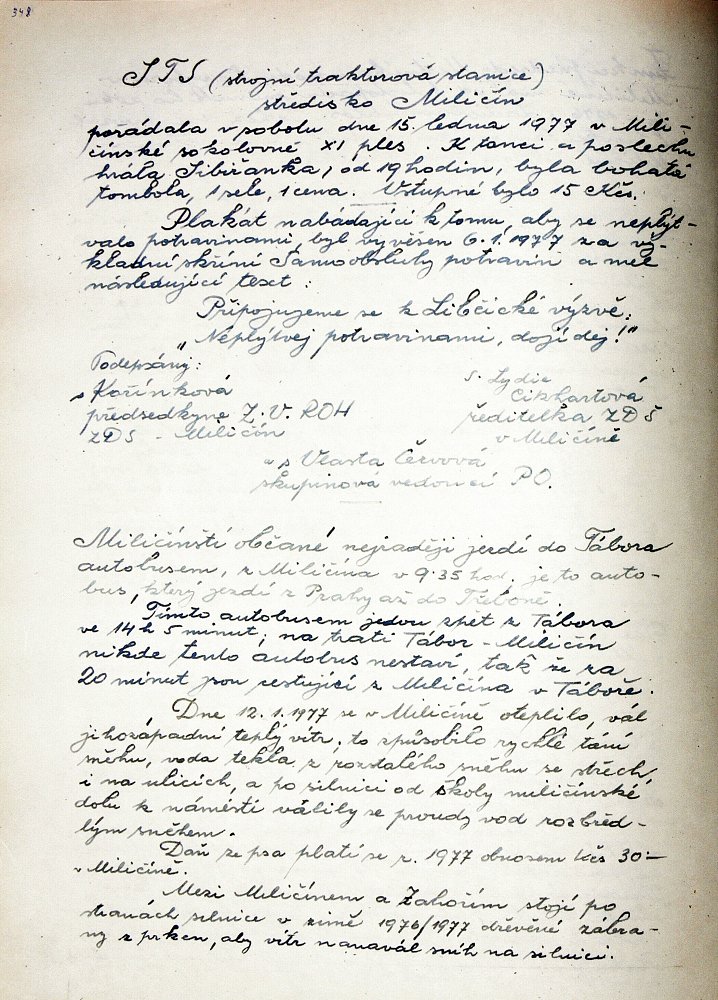 348
STS (strojní traktorová stanice)
středisko Miličín
pořádala v sobotu dne 15. ledna 1977 v Mili-
čínské sokolovně XI ples. K tanci a poslechu
hrála Sibiřanka, od 19 hodin, byla bohatá
tombola, 1 sele, 1 cena. Vstupné bylo 15 Kčs.
Plakát nabádající k tomu, aby se neplýt-
valo potravinami, byl vyvěšen 6.1.1977 za vý-
kladní skříní Samoobsluhy potravin a měl
následující text:
Připojujeme se k Libčické výzvě:
"Neplýtvej potravinami, dojídej!"
Podepsáni:
s Kořínková
předsedkyne Z.V. ROH
ZDŠ - Miličín
s. Lydie
Cikhartová
ředitelka ZDŠ
v Miličíně
a s Vlasta Červová
skupinová vedoucí PO.
Miličínští občané nejraději jezdí do Tábora
autobusem, z Miličína v 9.35 hod. je to auto-
bus, který jezdí z Prahy až do Třeboně.
Tímto autobusem jedou zpět z Tábora
ve 14 h 5 minut; na trati Tábor - Miličín
nikde tento autobus nestaví, tak že za
20 minut jsou cestující z Miličína v Táboře.
Dne 12.1.1977 se v Miličíně oteplilo, vál
jihozápadní teplý vítr, to způsobilo rychlé tání
sněhu, voda tekla z roztálého sněhu se střech,
i na ulicích, a po silnici od školy miličínské
dolů k náměstí válily se proudy vod rozbřed-
lým sněhem.
Daň ze psa platí se r. 1977 obnosem Kčs 30.-
v Miličíně.
Mezi Miličínem a Záhořím stojí po
stranách silnice v zimě 1976/1977 dřevěné zábra-
ny z prken, aby vítr nanavál sníh na silnici.